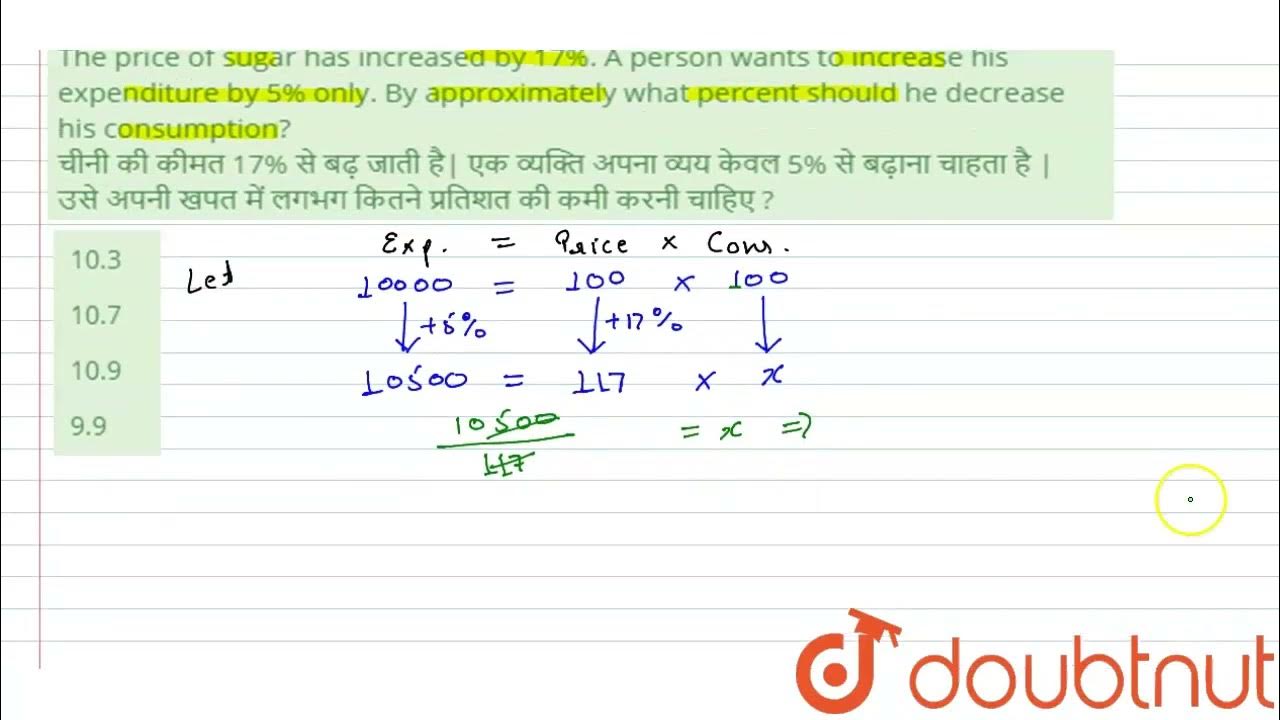 The price of sugar has increased by 17%. A person wants to increase his
expenditure by 5% only. By approximately what percent should he decrease
his consumption?
चीनी की कीमत 17% से बढ़ जाती है| एक व्यक्ति अपना व्यय केवल 5% से बढ़ाना चाहता है |
उसे अपनी खपत में लगभग कितने प्रतिशत की कमी करनी चाहिए ?
10.3
10.7
10.9
9.9
Exp. = Price × Cons.
Let 10000 = 100 × 100
+5% +17%
10500 = 117 × x
10500
117
= x =>
doubtnut